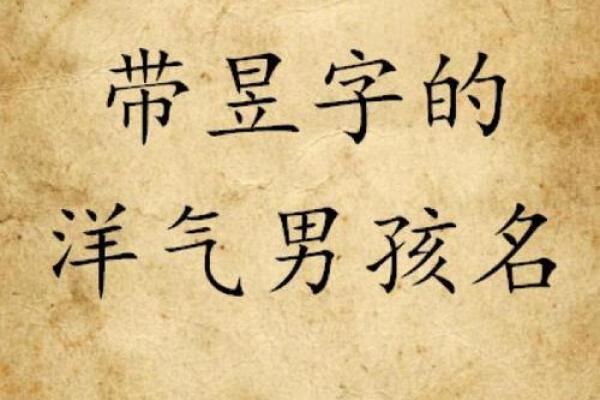 带昱字的
洋气男孩名